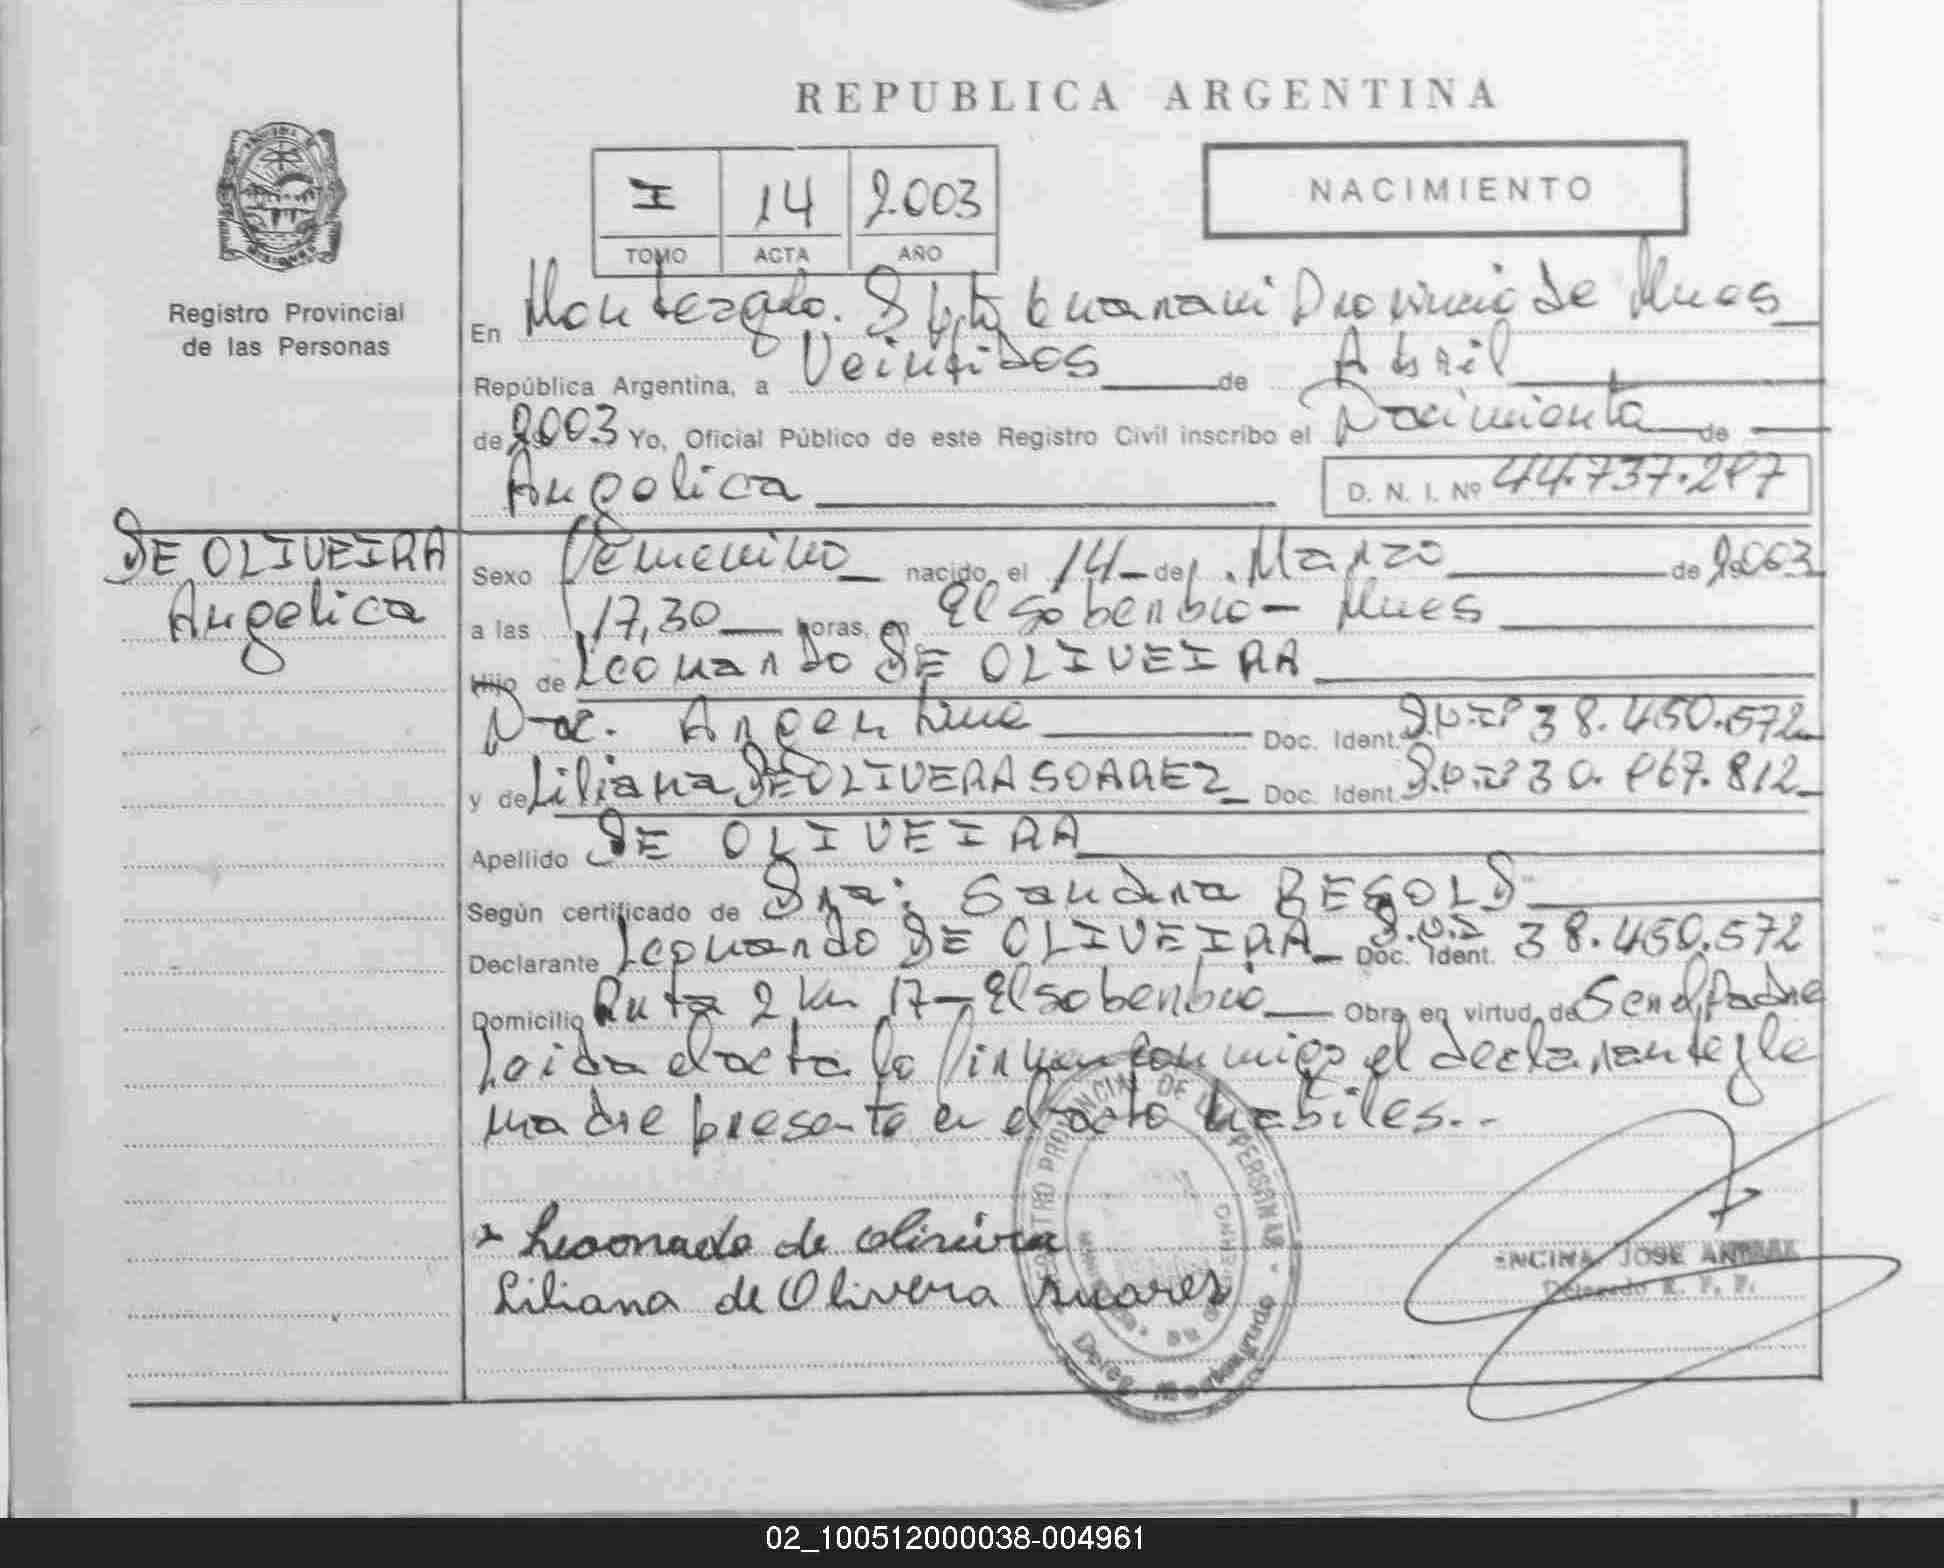 REPUBLICA ARGENTINA
I 14 2.003
TOMO ACTA AÑO
NACIMIENTO
Registro Provincial
de las Personas
En Montecarlo. Dpto Guarani Provincia de Mnes
República Argentina, a Veintidos de Abril
de 2003 Yo, Oficial Público de este Registro Civil inscribo el Nacimiento de
Angelica D. N. I. Nº 44.737.217
DE OLIVEIRA
Angelica
Sexo Femenino nacido el 14 de Marzo de 2.003
a las 17,30 horas, en El Soberbio - Mnes
Hijo de Leonardo DE OLIVEIRA
Nac. Argentina Doc. Ident. D.N.I Nº 38.450.572
y de Liliana DE OLIVERA SOAREZ Doc. Ident. D.N.I Nº 867.812
Apellido DE OLIVEIRA
Según certificado de Dra: Sandra BEGOLD
Declarante Leonardo DE OLIVEIRA Doc. Ident. D.N.I 38.450.572
Domicilio Ruta 2 Km 17 - El Soberbio Obra en virtud de Ser el Padre
Leida el acta la firman conmigo el declarante y la
madre presente en el acto habiles..
Leoonado de oliveira
Liliana de Olivera suares
REGISTRO PROVINCIAL DE LAS PERSONAS
ENCINA JOSE ANIBAL
Delegado R. P. P.
02_100512000038-004961